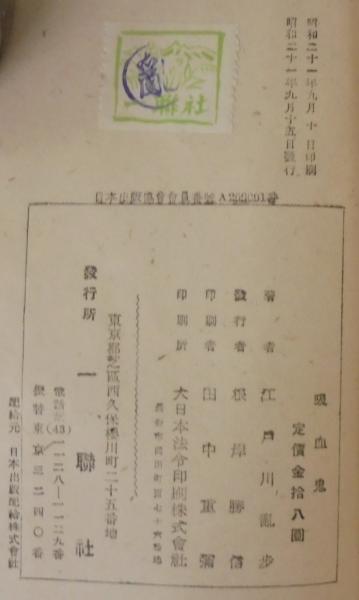 昭和二十一年九月十日印刷
昭和二十一年九月十五日發行
一聯社
日本出版協會會員番號A209001番
吸血鬼
定價金拾八圓
著者 江戸川亂步
發行者 根岸勝信
印刷者 田中重彌
印刷所 大日本法令印刷株式會社
東京都芝區西久保櫻川町二十五番地
發行所 一聯社
電話芝(43)一一二八―一一二九番
振替東京三二四〇番
配給元 日本出版配給株式會社